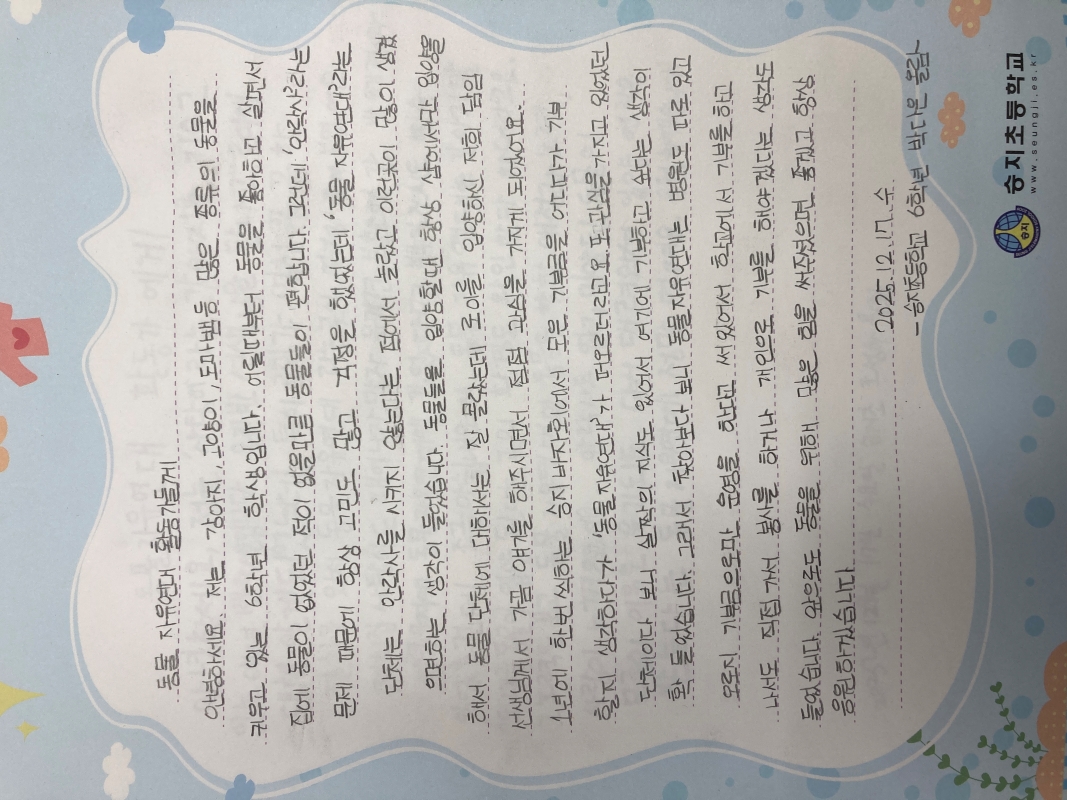 동물 자유연대 활동가들께
안녕하세요. 저는 강아지, 고양이, 도마뱀 등 많은 종류의 동물을
키우고 있는 6학년 학생입니다. 어릴때부터 동물을 좋아하고 살면서
집에 동물이 없었던 적이 없을만큼 동물들이 편합니다. 그런데 '안락사'라는
문제 때문에 항상 고민도 많고 걱정을 했었는데 '동물 자유연대'라는
단체는 안락사를 시키지 않는다는 점에서 놀랐고 이런곳이 많이 생겼
으면하는 생각이 들었습니다. 동물들을 입양할때 항상 샵에서만 입양을
해서 동물 단체에 대해서는 잘 몰랐는데 도이를 입양하신 저희 담임
선생님께서 가끔 얘기를 해주시면서 점점 관심을 가지게 되었어요.
1년에 한번씩하는 승지 바자회에서 모은 기부금을 어디다가 기부
할지 생각하다가 '동물자유연대'가 떠오르더라고요. 또 관심을 가지고 있었던
단체이다 보니 살짝의 지식도 있어서 여기에 기부하고 싶다는 생각이
확 들었습니다. 그래서 찾아보다 보니 동물자유연대는 병원도 따로 있고
오로지 기부금으로만 운영을 한다고 써 있어서 학교에서 기부를 하고
나서도 직접 가서 봉사를 하거나 개인으로 기부를 해야겠다는 생각도
들었습니다. 앞으로도 동물을 위해 많은 힘을 써주셨으면 좋겠고 항상
응원하겠습니다.
2025. 12. 17. 수
- 승지초등학교 6학년 박다은 올림 -
승지초등학교
www.seungji.es.kr
승지